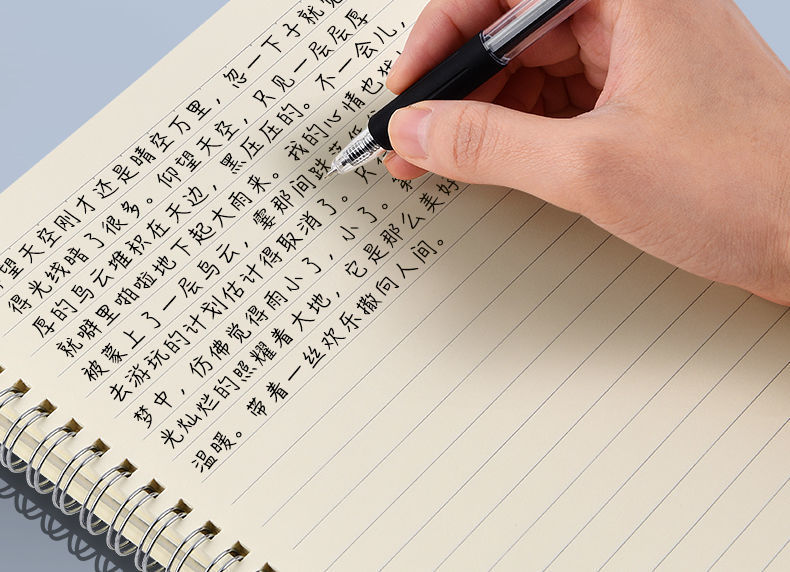 望天空刚才还是晴空万里，忽一下子就觉
得光线暗了很多。仰望天空，只见一层层厚
厚的乌云堆积在天边，黑压压的。不一会儿，
就噼里啪啦地下起大雨来。我的心情也犹
被蒙上了一层乌云，霎那间跌落
去游玩的计划估计得取消了。只
梦中，仿佛觉得雨小了，小了。第
光灿烂的照耀着大地，它是那么美好
温暖。带着一丝欢乐撒向人间。